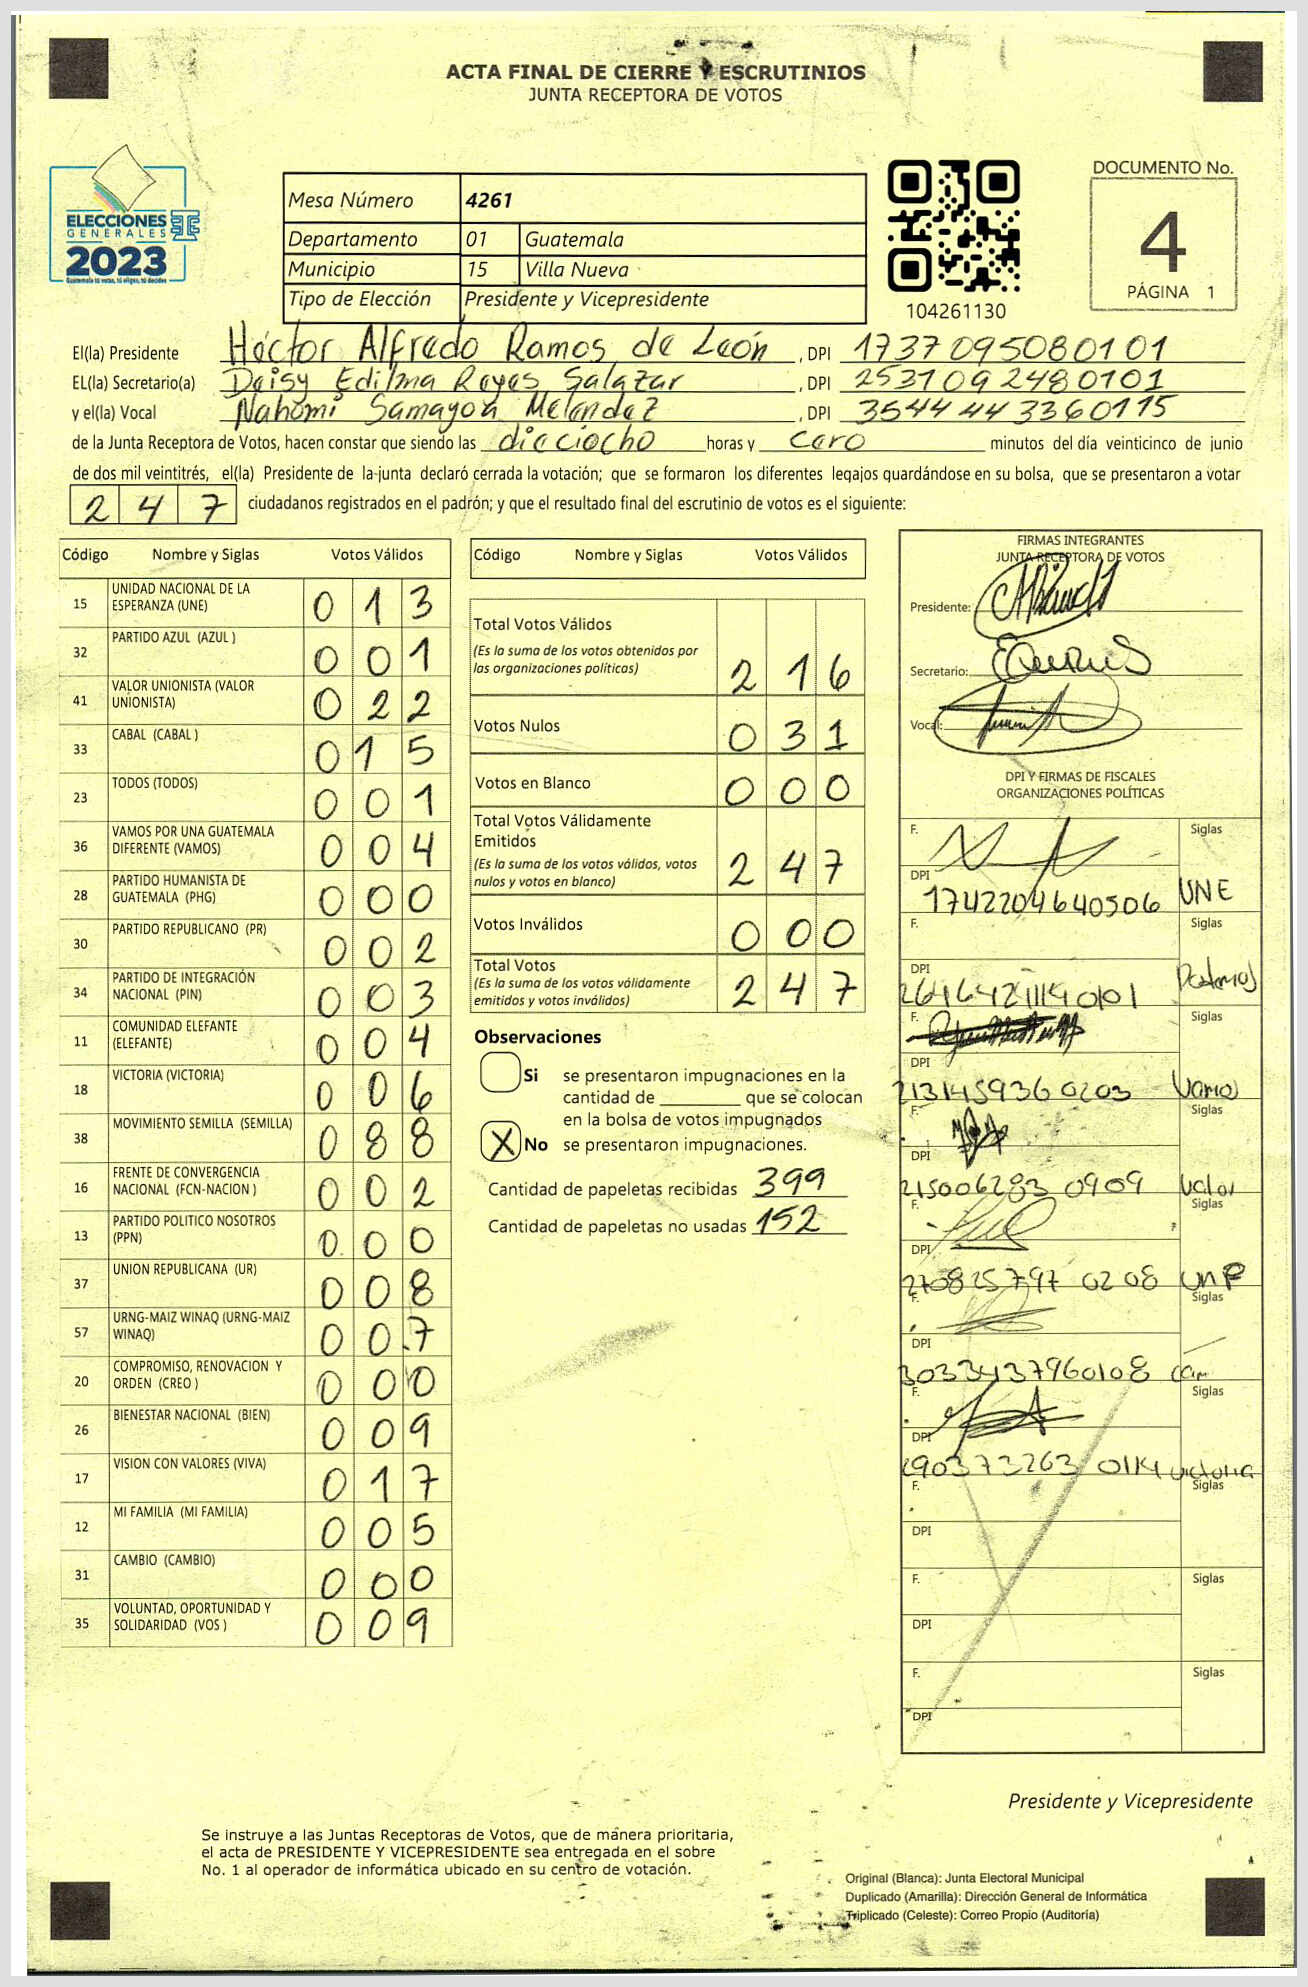 ACTA FINAL DE CIERRE Y ESCRUTINIOS
JUNTA RECEPTORA DE VOTOS
ELECCIONES
GENERALES
2023
Guatemala tú votas, tú eliges, tú decides
Mesa Número 4261
Departamento 01 Guatemala
Municipio 15 Villa Nueva
Tipo de Elección Presidente y Vicepresidente
104261130
DOCUMENTO No.
4
PÁGINA 1
El(la) Presidente Héctor Alfredo Ramos de León , DPI 1737095080101
EL(la) Secretario(a) Deisy Edilma Reyes Salazar , DPI 2531092480101
y el(la) Vocal Nahomi Samayoa Meléndez , DPI 3544443360115
de la Junta Receptora de Votos, hacen constar que siendo las dieciocho horas y cero minutos del día veinticinco de junio
de dos mil veintitrés, el(la) Presidente de la junta declaró cerrada la votación; que se formaron los diferentes legajos guardándose en su bolsa, que se presentaron a votar
247 ciudadanos registrados en el padrón; y que el resultado final del escrutinio de votos es el siguiente:
Código Nombre y Siglas Votos Válidos
15 UNIDAD NACIONAL DE LA ESPERANZA (UNE) 013
32 PARTIDO AZUL (AZUL ) 001
41 VALOR UNIONISTA (VALOR UNIONISTA) 022
33 CABAL (CABAL ) 015
23 TODOS (TODOS) 001
36 VAMOS POR UNA GUATEMALA DIFERENTE (VAMOS) 004
28 PARTIDO HUMANISTA DE GUATEMALA (PHG) 000
30 PARTIDO REPUBLICANO (PR) 002
34 PARTIDO DE INTEGRACIÓN NACIONAL (PIN) 003
11 COMUNIDAD ELEFANTE (ELEFANTE) 004
18 VICTORIA (VICTORIA) 006
38 MOVIMIENTO SEMILLA (SEMILLA) 088
16 FRENTE DE CONVERGENCIA NACIONAL (FCN-NACION ) 002
13 PARTIDO POLITICO NOSOTROS (PPN) 000
37 UNION REPUBLICANA (UR) 008
57 URNG-MAIZ WINAQ (URNG-MAIZ WINAQ) 007
20 COMPROMISO, RENOVACION Y ORDEN (CREO ) 000
26 BIENESTAR NACIONAL (BIEN) 009
17 VISION CON VALORES (VIVA) 017
12 MI FAMILIA (MI FAMILIA) 005
31 CAMBIO (CAMBIO) 000
35 VOLUNTAD, OPORTUNIDAD Y SOLIDARIDAD (VOS ) 009
Código Nombre y Siglas Votos Válidos
Total Votos Válidos
(Es la suma de los votos obtenidos por
las organizaciones políticas) 216
Votos Nulos 031
Votos en Blanco 000
Total Votos Válidamente
Emitidos
(Es la suma de los votos válidos, votos
nulos y votos en blanco) 247
Votos Inválidos 000
Total Votos
(Es la suma de los votos válidamente
emitidos y votos inválidos) 247
Observaciones
Si se presentaron impugnaciones en la
cantidad de ________ que se colocan
en la bolsa de votos impugnados
X No se presentaron impugnaciones.
Cantidad de papeletas recibidas 399
Cantidad de papeletas no usadas 152
FIRMAS INTEGRANTES
JUNTA RECEPTORA DE VOTOS
Presidente:
Secretario:
Vocal:
DPI Y FIRMAS DE FISCALES
ORGANIZACIONES POLÍTICAS
F. Siglas
DPI 1742204640506 UNE
F. Siglas
DPI
F. Siglas
DPI 2131459360203 Vamos
F. Siglas
DPI 2150062830909 Valor
F. Siglas
DPI 2708257970208
F. Siglas
DPI 3033437960108
F. Siglas
DPI 2903732630114 victoria
F. Siglas
DPI
F. Siglas
DPI
F. Siglas
DPI
Presidente y Vicepresidente
Se instruye a las Juntas Receptoras de Votos, que de manera prioritaria,
el acta de PRESIDENTE Y VICEPRESIDENTE sea entregada en el sobre
No. 1 al operador de informática ubicado en su centro de votación.
Original (Blanca): Junta Electoral Municipal
Duplicado (Amarilla): Dirección General de Informática
Triplicado (Celeste): Correo Propio (Auditoría)